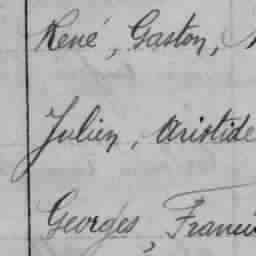 René, Gaston,
Julien, Aristide
Georges, Franci